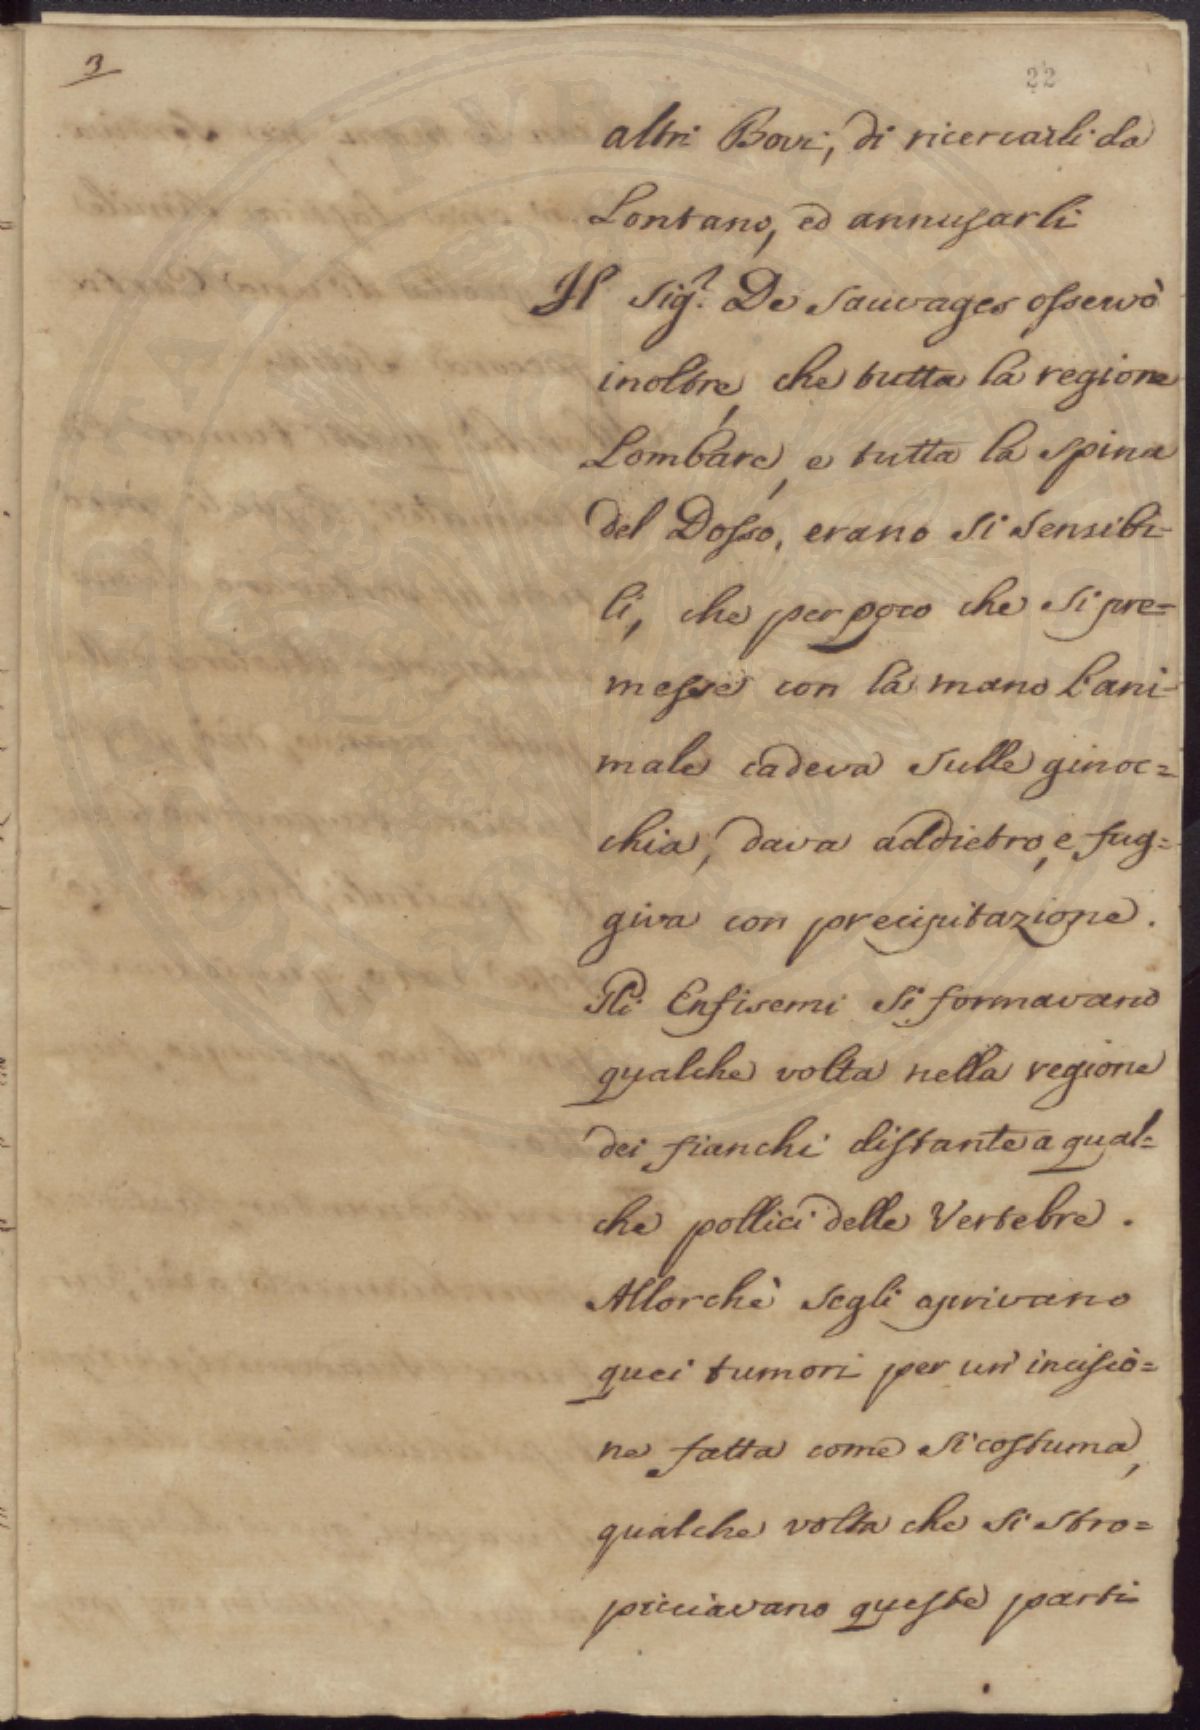 3
22
altri Bovi, di ricercarli da
Lontano, ed annusarli
Il Sig.r De Sauvages osservò
inoltre, che tutta la regione
Lombare, e tutta la spina
del Dosso, erano si sensibi-
li, che per poco che si pre=
messe con la mano l'ani-
male cadeva sulle ginoc=
chia, dava addietro, e fug=
giva con precipitazione.
Gli Enfisemi si formavano
qualche volta nella regione
dei fianchi distante a qual=
che pollici delle Vertebre.
Allorchè segli aprivano
quei tumori per un'incisio=
ne fatta come si costuma,
qualche volta che si stro=
picciavano queste parti